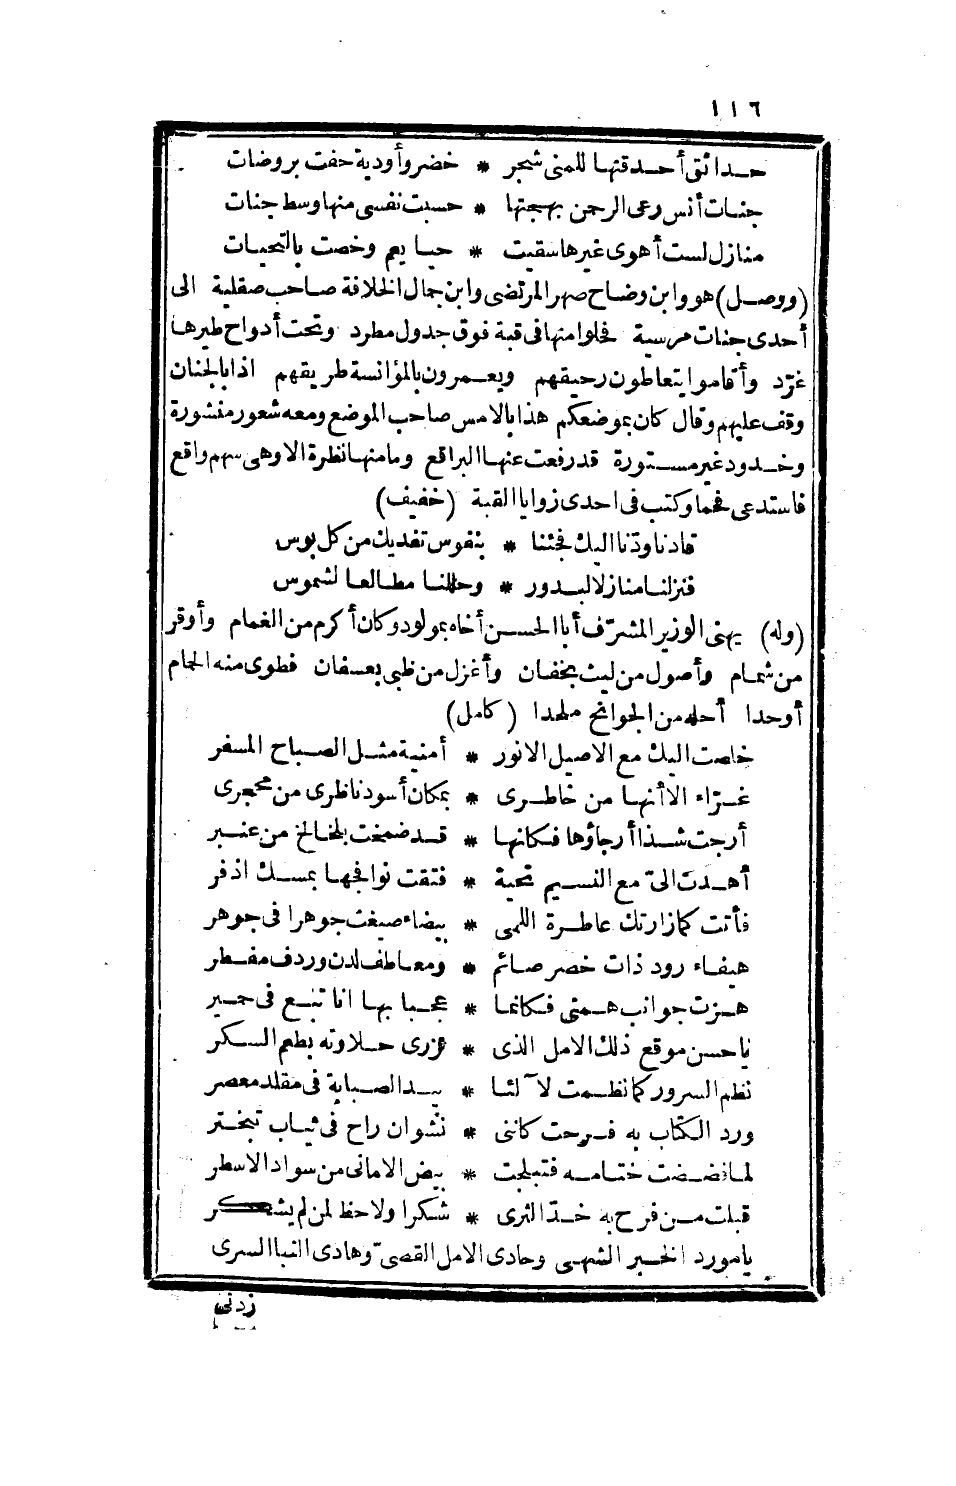 ١١٦
حدائق أحدقتها للمنى شجر * خضر وأودية حفت بروضات
جنات أنس رعى الرحمن بهجتها * حسبت نفسى منها وسط جنات
منازل لست أهوى غيرها سقيت * حيا يعم وخصت بالتحيات
(ووصل) هو وابن وضاح صهر المرتضى وابن جمال الخلافة صاحب صقلية الى
أحدى جنات مرسية فحلوا منها فى قبة فوق جدول مطرد وتحت أدواح طيرها
غرّد وأقاموا يتعاطون رحيقهم ويعمرون بالمؤانسة طريقهم اذا بالجنان
وقف عليهم وقال كان بموضعكم هذا بالامس صاحب الموضع ومعه شعور منشورة
وخدود غير مستورة قد رفعت عنها البراقع وما منها نظرة الا وهى سهم واقع
فاستدعى فحما وكتب فى احدى زوايا القبة (خفيف)
قادنا ودّنا اليك فجئنا * بنفوس تفديك من كل بوس
فنزلنا منازلا لبدور * وحللنا مطالعا لشموس
(وله) يهنى الوزير المشرّف أبا الحسن أخاه بمولود وكان أكرم من الغمام وأوقر
من شمام وأصول من ليث بخفان وأغزل من ظبى بعسفان فطوى منه الحمام
أوحدا أحله من الجوانح ملحدا (كامل)
خلصت اليك مع الاصيل الانور * أمنية مثل الصباح المسفر
غرّاء الا أنها من خاطرى * بمكان أسود ناظرى من محجرى
أرجت شذا أرجاؤها فكانها * قد ضمخت بلخالخ من عنبر
أهدت الىّ مع النسيم تحية * فتقت نوافجها بمسك اذفر
فأتت كما زارتك عاطرة اللمى * بيضاء صيغت جوهرا فى جوهر
هيفاء رود ذات خصر صائم * ومعاطف لدن وردف مفطر
هزت جوانب همتى فكانما * عجبا بها انا تبع فى حمير
ياحسن موقع ذلك الامل الذى * زرى حلاوته بطعم السكر
نظم السرور كما نظمت لآلئا * بيد الصبابة فى مقلد معصر
ورد الكتاب به فرحت كاننى * نشوان راح فى ثياب تبختر
لما فضضت ختامه فتبلجت * بيض الامانى من سواد الاسطر
قبلت من فرح به خدّ الثرى * شكرا ولا حظ لمن لم يشكر
يامورد الخبر الشهى وحادى الامل القصىّ وهادى النبا السرى
زدنى